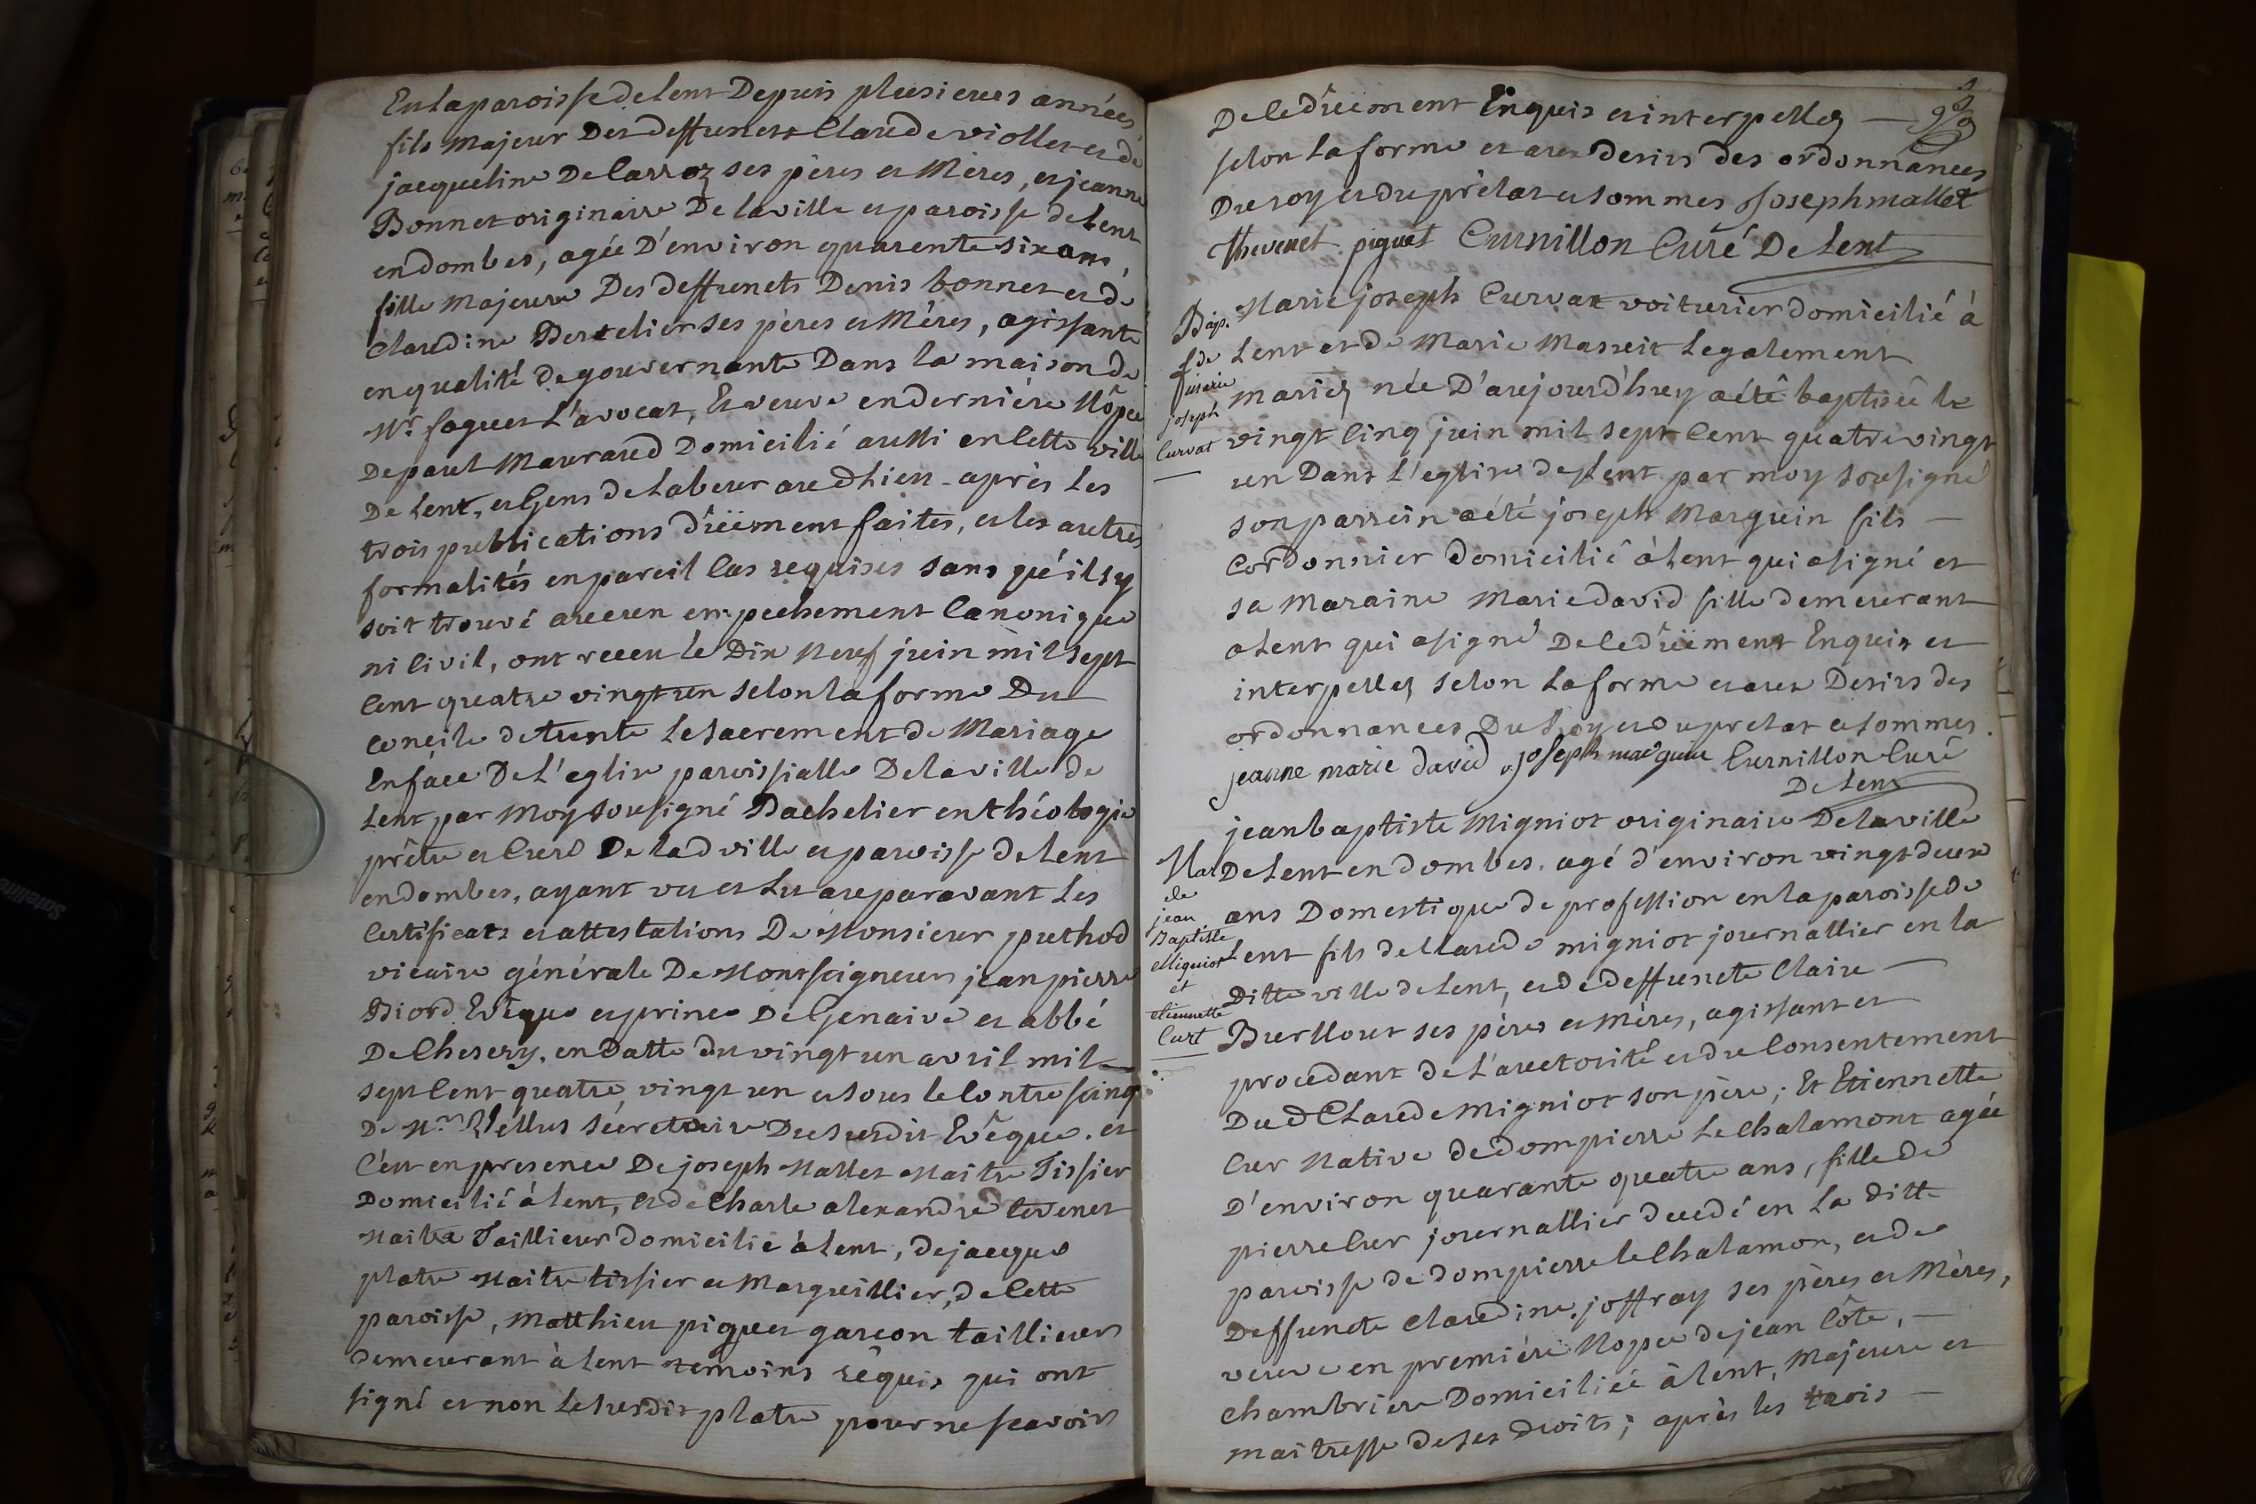 En la paroisse de Lent Depuis plusieurs années
fils Majeur Des deffuncts Claude viollet et de
jacqueline Delarroz ses pères et Mères, et jeanne
Bonnet originaire De la ville et paroisse de Lent
en dombes, agée D'environ quarente six ans,
fille Majeure Des deffuncts Denis bonnet et de
Claudine Bertelier ses pères et Mères, agissante
en qualité de gouvernante Dans la maison de
Mr. faguet L'avocat, Et veuve en dernière Nôpce
De paul Mauraud Domicilié aussi en Cette ville
De Lent, et Gens de Labeur aud Lieu - après Les
trois publications düement faites, et les autres
formalités en pareil Cas requises sans qu'é il s'y
soit trouvé aucun empechement Canonique
ni Civil, ont receu le Dix Neuf juin mil sept
Cent quatre vingt un selon la forme Du
Concile de trente Le sacrement de Mariage
En face De L'eglise paroissialle De la ville de
Lent par Moy sousigné Bachelier en théologie
prêtre et Curé De lad ville et paroisse de Lent
en dombes, ayant vu et Lu auparavant Les
Certificats et attestations De Monsieur puthod
vicaire générale De Monseigneur jean pierre
Biord Evêque et prince De Genaive et abbé
De Chesery, en Datte du vingt un avril mil
sept Cent quatre vingt un et sous le Contre seing
De Mr. Vellus sécretaire Du susdit Evêque. et
C'eut en presence De joseph Mallet Maitre Tissier
Domicilié à Lent, et de Charle alexandre tevenet
Maitre Taillieur domicilié à Lent, de jacque
platre Maitre tissier et Marguillier, de Cette
paroisse, Matthieu piquet garçon taillieur
demeurant à Lent temoins réquis qui ont
signé et non Le susdit platre pour ne scavoir
De Ce düement Enquis et interpellez —
selon La forme et aux desirs des ordonnances
Du roy et du prélat et sommes Joseph mallet
thevenet piquet Curnillon Curé De Lent
Bap.
f de
Marie
joseph
Curvat
Marie joseph Curvat voiturier domicilié à
Lent et de Marie Masseit Legalement
mariez née D'aujourd'huy a été baptisée le
vingt Cinq juin mil sept Cent quatre vingt
un Dans L'eglise de Lent par moy sousigné
son parrein a été joseph Marguin fils —
Cordonnier domicilié à Lent qui a signé et
sa Maraine Marie david fille demeurant
a Lent qui a signé De Ce düement Enquis et
interpellez selon La forme et aux Desirs des
ordonnances Du Roy et du prelat et sommes.
jeanne marie david joseph marguin Curnillon Curé
De Lent
Mar
de
jean
Baptiste
Migniot
et
etiennette
Curt
jean baptiste Migniot originaire De la ville
De Lent en dombes. agé d'environ vingt deux
ans Domestique de profession en la paroisse de
Lent fils de Claude migniot journallier en la
Ditte ville de Lent, et de deffuncte Claire —
Buellout ses pères et mères, agissant et
procedant de L'auctorité et du Consentement
Dud Claude Migniot son père; Et Etiennette
Cur Native de dompierre Le Chalamont agée
D'environ quarante quatre ans, fille de
pierre Cur journallier decedé en La ditte
paroisse de dompierre le Chalamon, et de
Deffuncte Claudine joffray ses pères et Mères,
veuve en première Nopce de jean Côte, —
chambriere Domiciliée à Lent, Majeure et
maitresse de ses droits; après les trois —